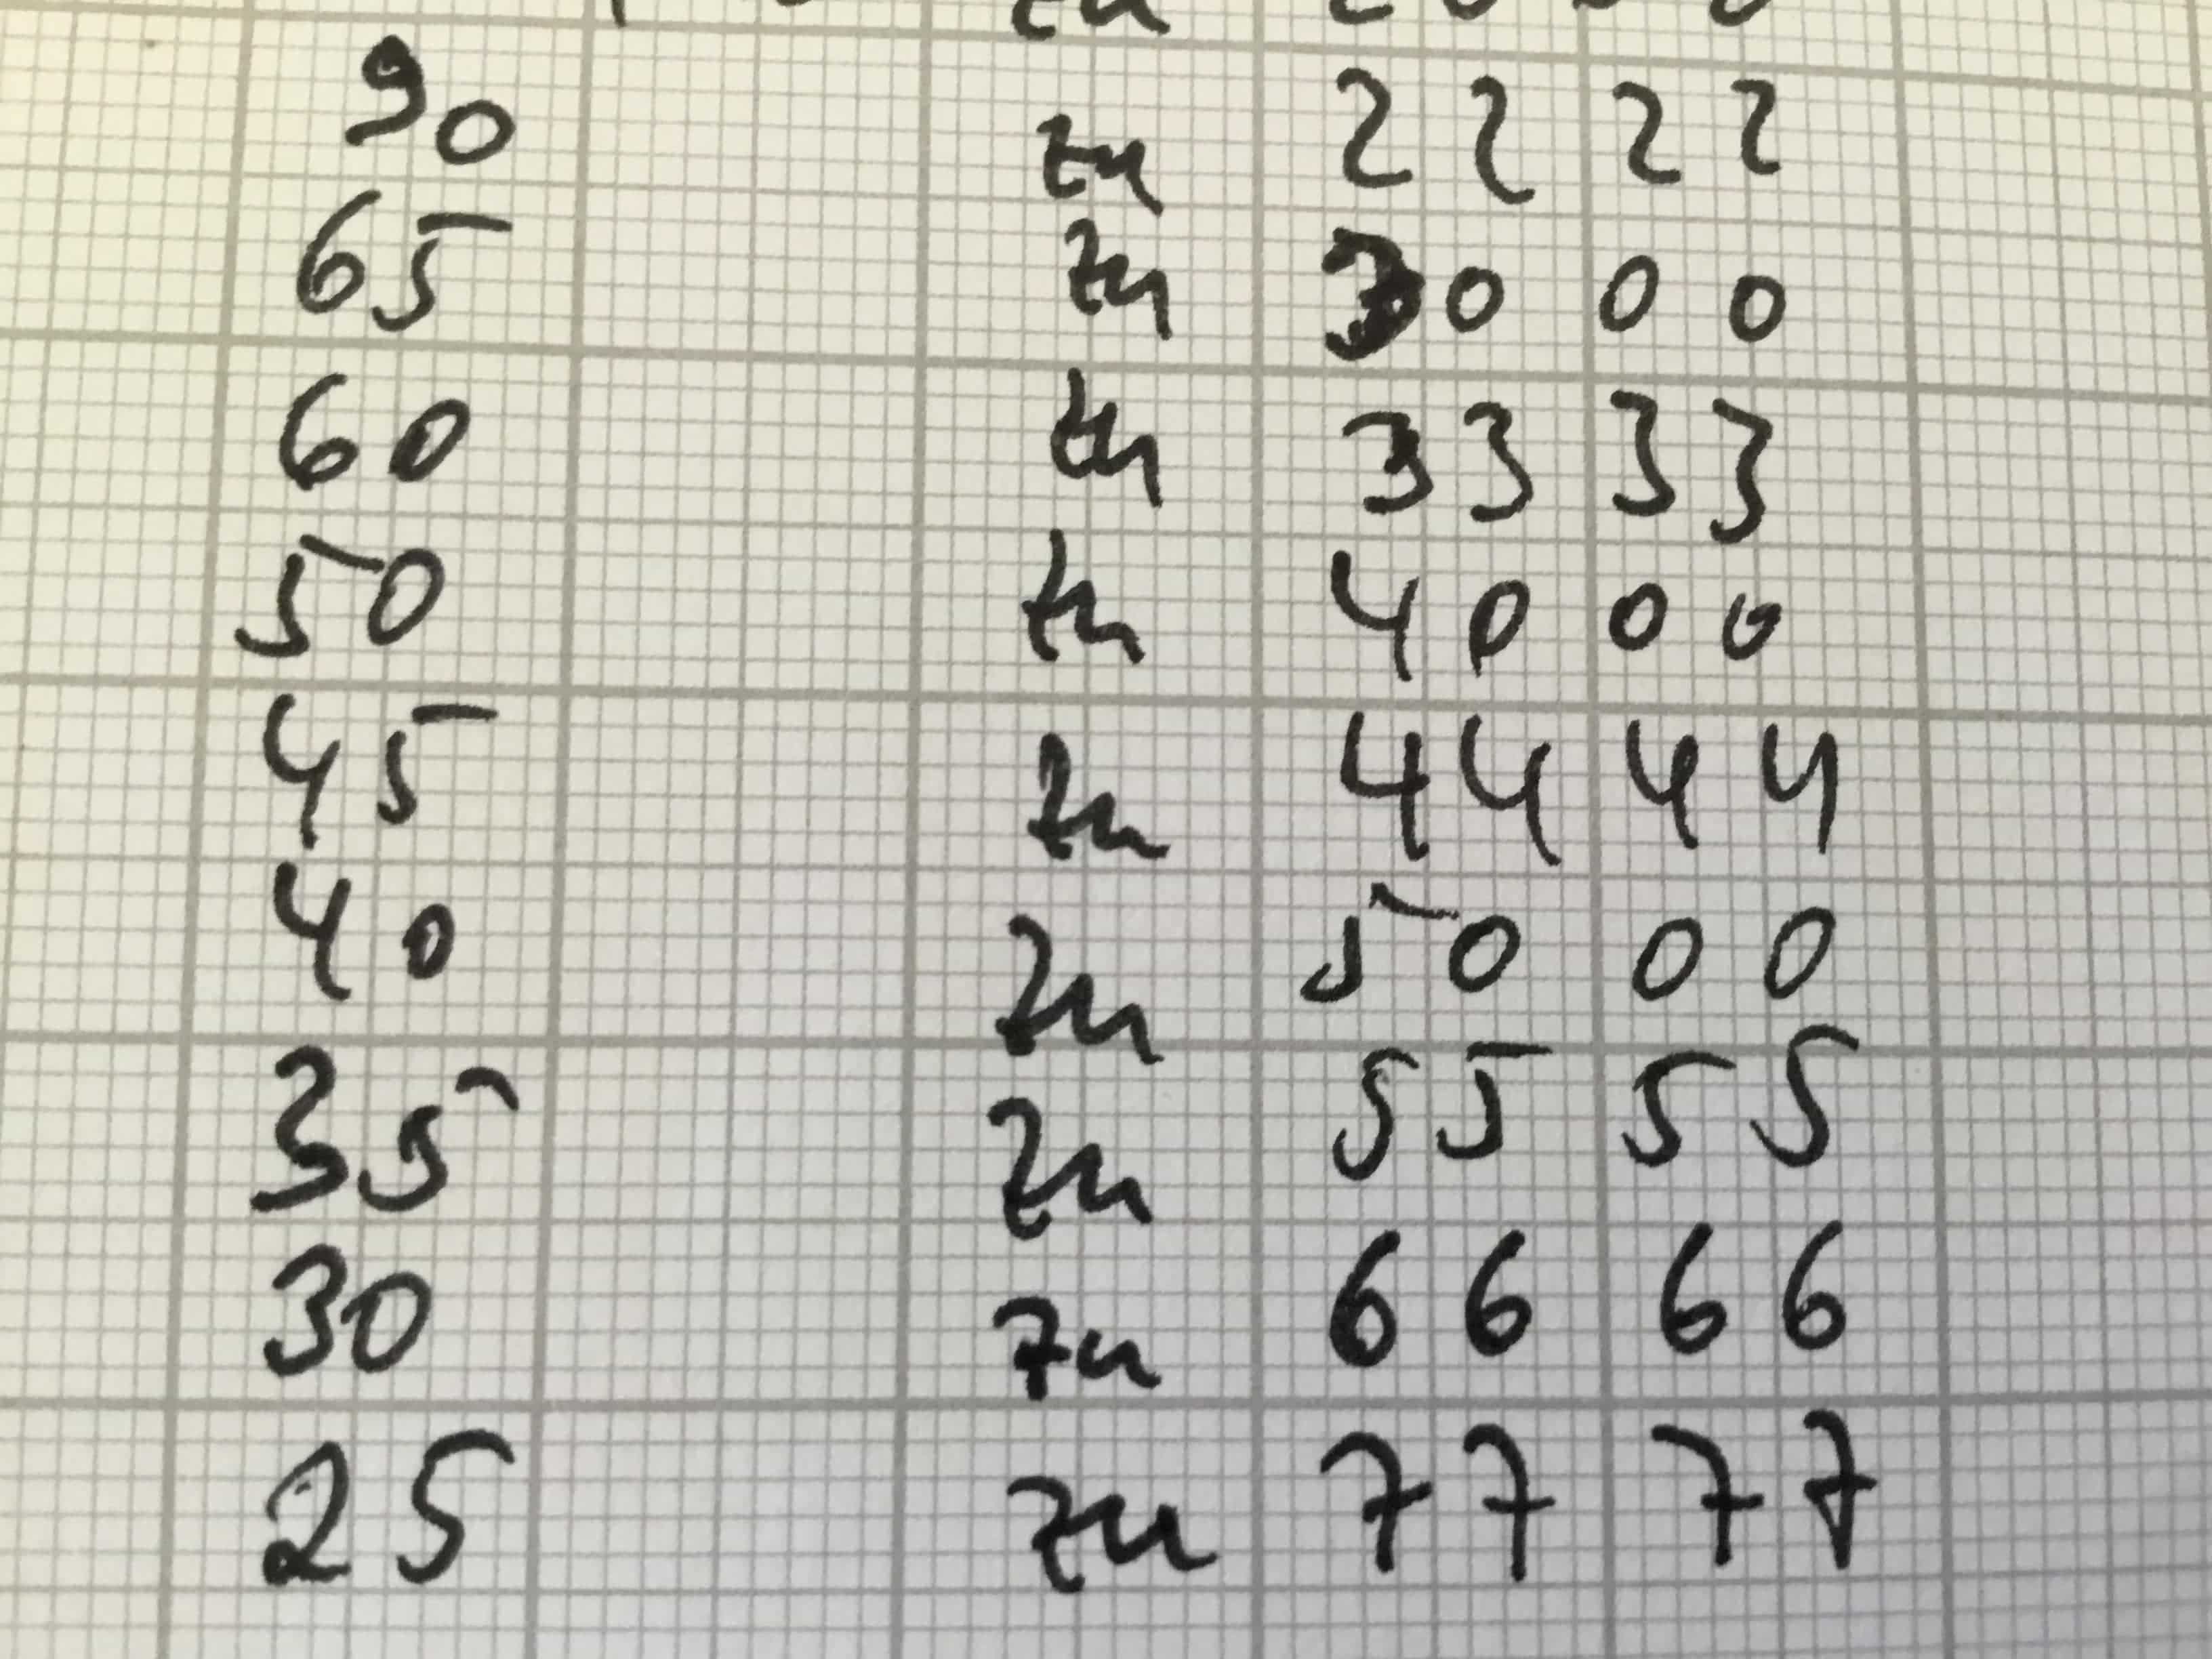 zu 2000
90 zu 2222
65 zu 3000
60 zu 3333
50 zu 4000
45 zu 4444
40 zu 5000
35 zu 5555
30 zu 6666
25 zu 7777